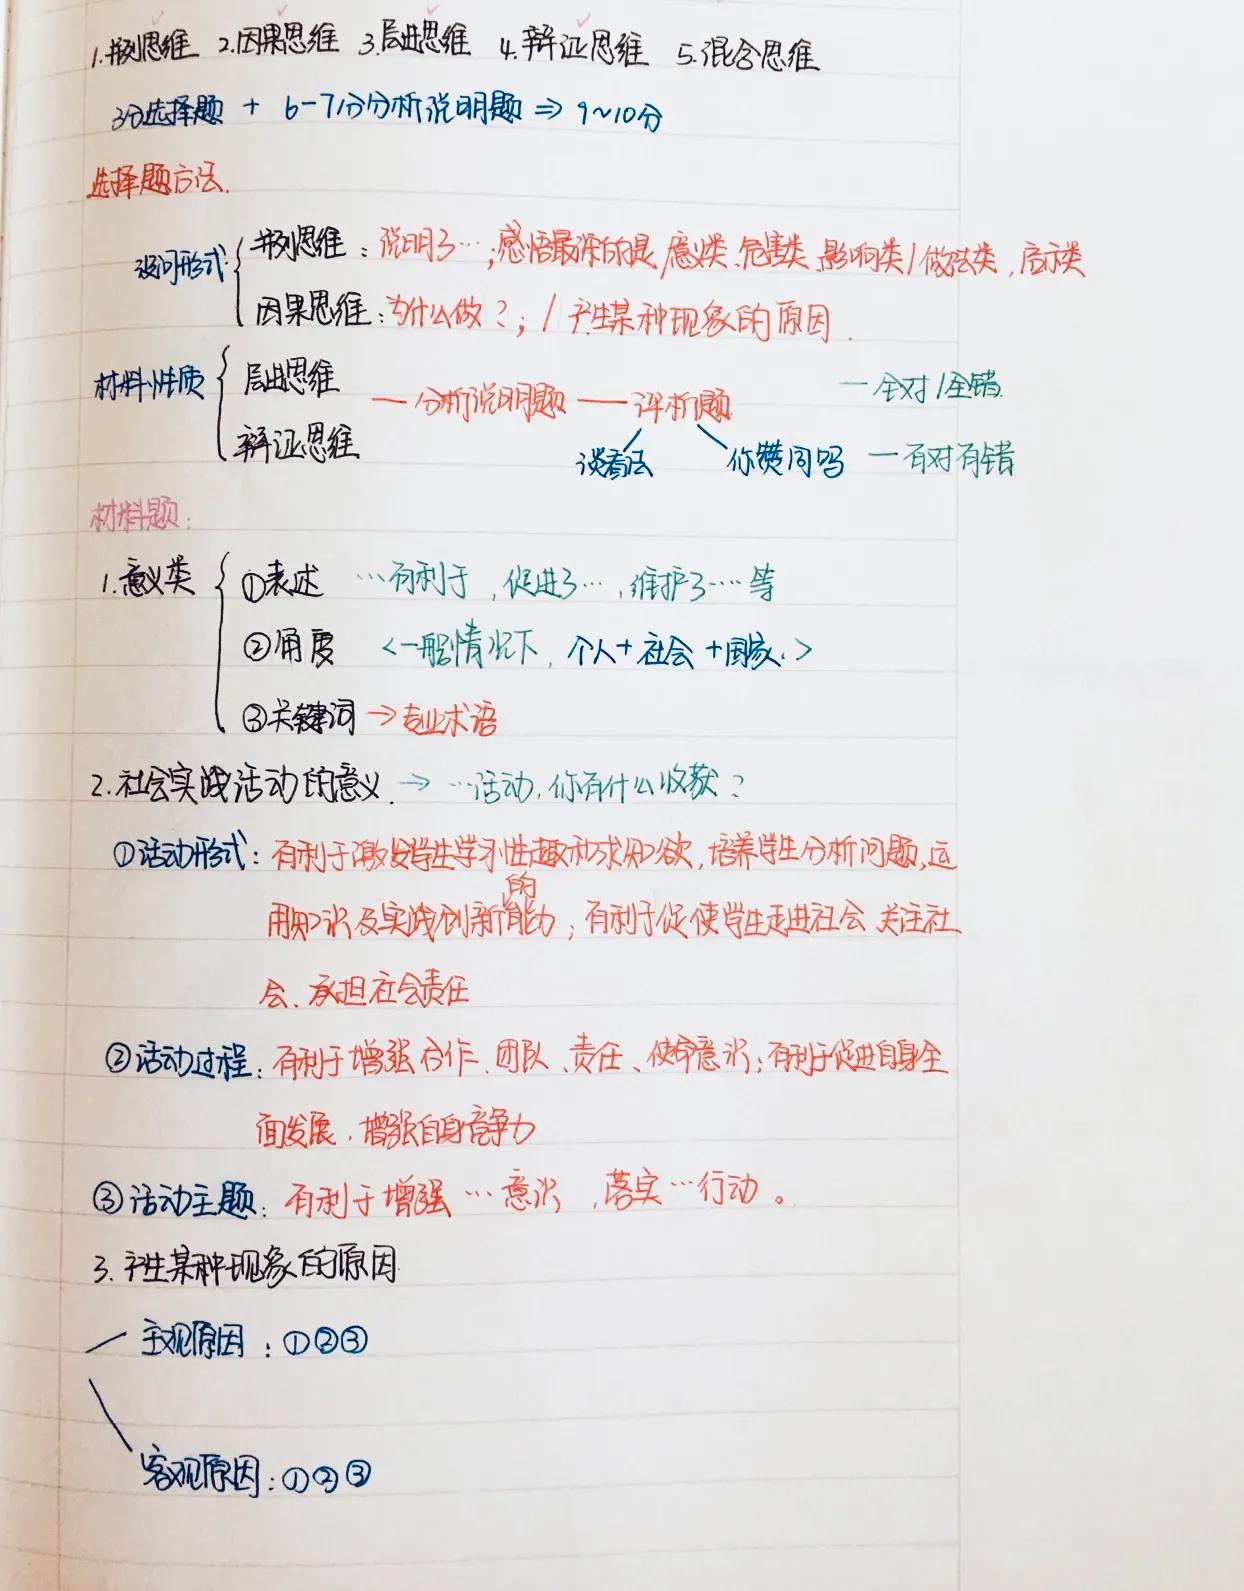 1.并列思维 2.因果思维 3.层进思维 4.辩证思维 5.混合思维
3分选择题 + 6-7分分析说明题 ⇒ 9~10分
选择题方法.
设问形式: { 并列思维：说明了…;感悟最深的是/意义类、危害类、影响类/做法类,启示类
因果思维:为什么做？;/产生某种现象的原因.
材料性质 { 层进思维
辩证思维
— 分析说明题 — 评析题
谈看法 你赞同吗
一全对/全错
一有对有错
材料题：
1.意义类 { ①表述 …有利于,促进了…,维护了……等
②角度 <一般情况下,个人+社会+国家.>
③关键词→专业术语
2.社会实践活动的意义.→ …活动,你有什么收获？
①活动形式：有利于激发学生学习性趣和求知欲,培养学生分析问题,运
用知识及实践创新的能力；有利于促使学生走进社会 关注社
会、承担社会责任
②活动过程：有利于增强合作、团队、责任、使命意识；有利于促进自身全
面发展,增强自身竞争力
③活动主题：有利于增强…意识,落实…行动。
3.产生某种现象的原因
主观原因：①②③
客观原因：①②③